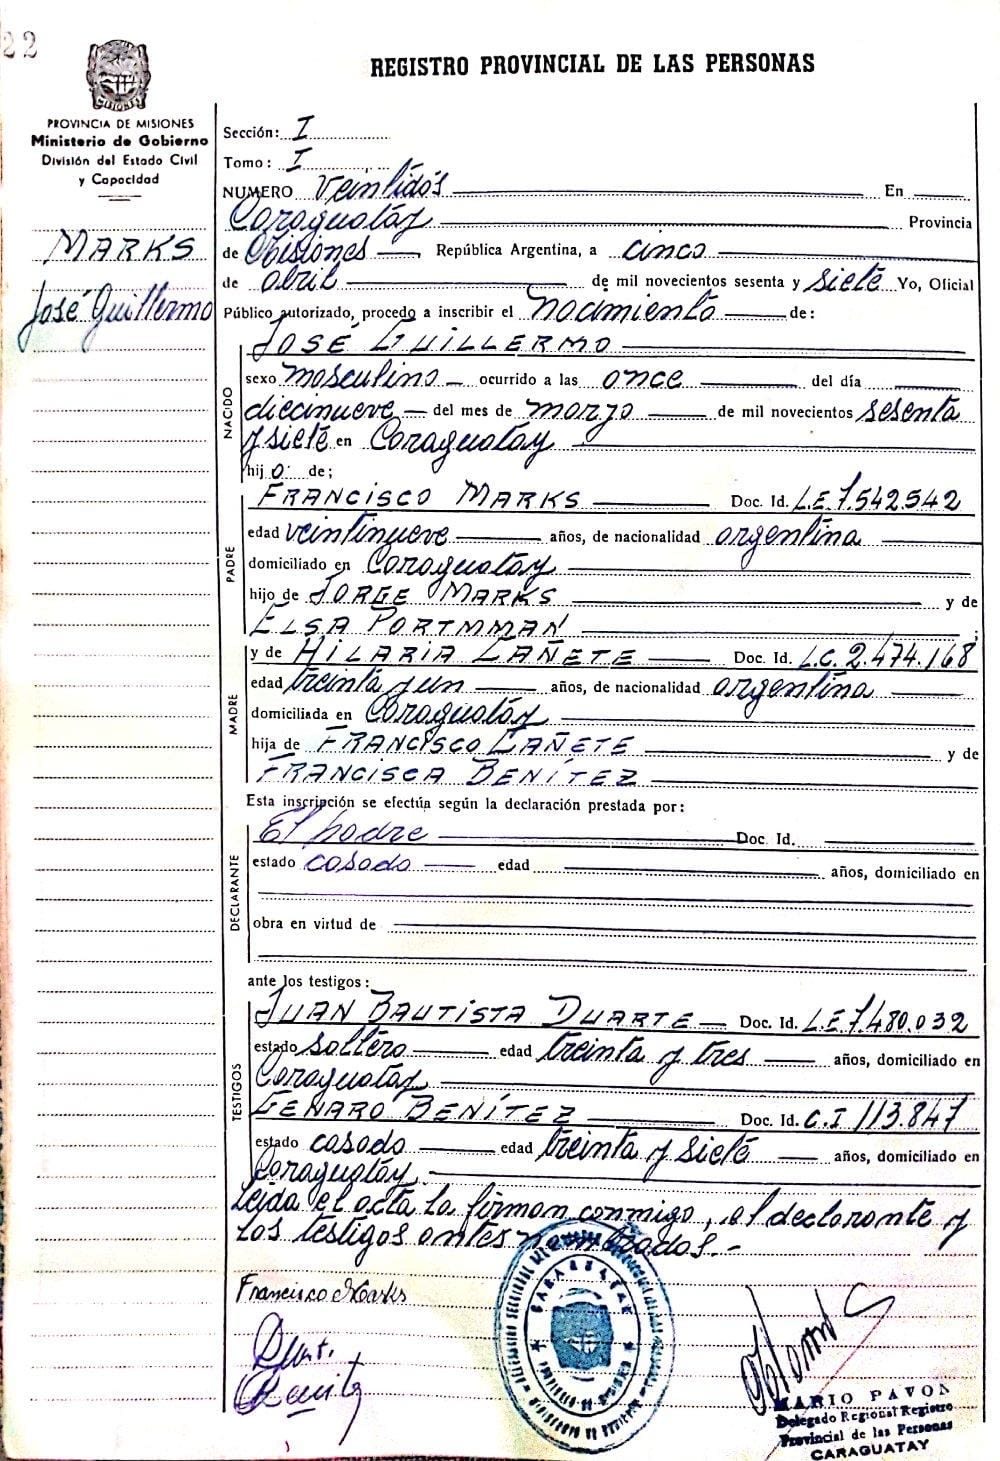 22
REGISTRO PROVINCIAL DE LAS PERSONAS
MISIONES
PROVINCIA DE MISIONES
Ministerio de Gobierno
División del Estado Civil
y Capacidad
MARKS
José Guillermo
Sección: I
Tomo: I
NUMERO Veintidós En
Caraguatay Provincia
de Misiones República Argentina, a cinco
de abril de mil novecientos sesenta y siete Yo, Oficial
Público autorizado, procedo a inscribir el nacimiento de:
JOSÉ GUILLERMO
NACIDO
sexo masculino ocurrido a las once del día
diecinueve del mes de marzo de mil novecientos sesenta
y siete en Caraguatay
hijo de;
PADRE
FRANCISCO MARKS Doc. Id. L.E. 7.542.542
edad veintinueve años, de nacionalidad argentina
domiciliado en Caraguatay
hijo de JORGE MARKS y de
ELSA PORTMMAN ;
MADRE
y de HILARIA CAÑETE Doc. Id. L.C. 2.474.168
edad treinta y un años, de nacionalidad argentina
domiciliada en Caraguatay
hija de FRANCISCO CAÑETE y de
FRANCISCA BENÍTEZ
Esta inscripción se efectúa según la declaración prestada por:
DECLARANTE
El padre Doc. Id.
estado casado edad años, domiciliado en
obra en virtud de
ante los testigos:
TESTIGOS
JUAN BAUTISTA DUARTE Doc. Id. L.E. 7.480.032
estado soltero edad treinta y tres años, domiciliado en
Caraguatay
GENARO BENÍTEZ Doc. Id. C.I 113.847
estado casado edad treinta y siete años, domiciliado en
Caraguatay.
Leida el acta la firman conmigo, el declarante y
los testigos antes nombrados.-
Francisco Marks
CARAGUATAY
MARIO PAVON
Delegado Regional Registro
Provincial de las Personas
CARAGUATAY